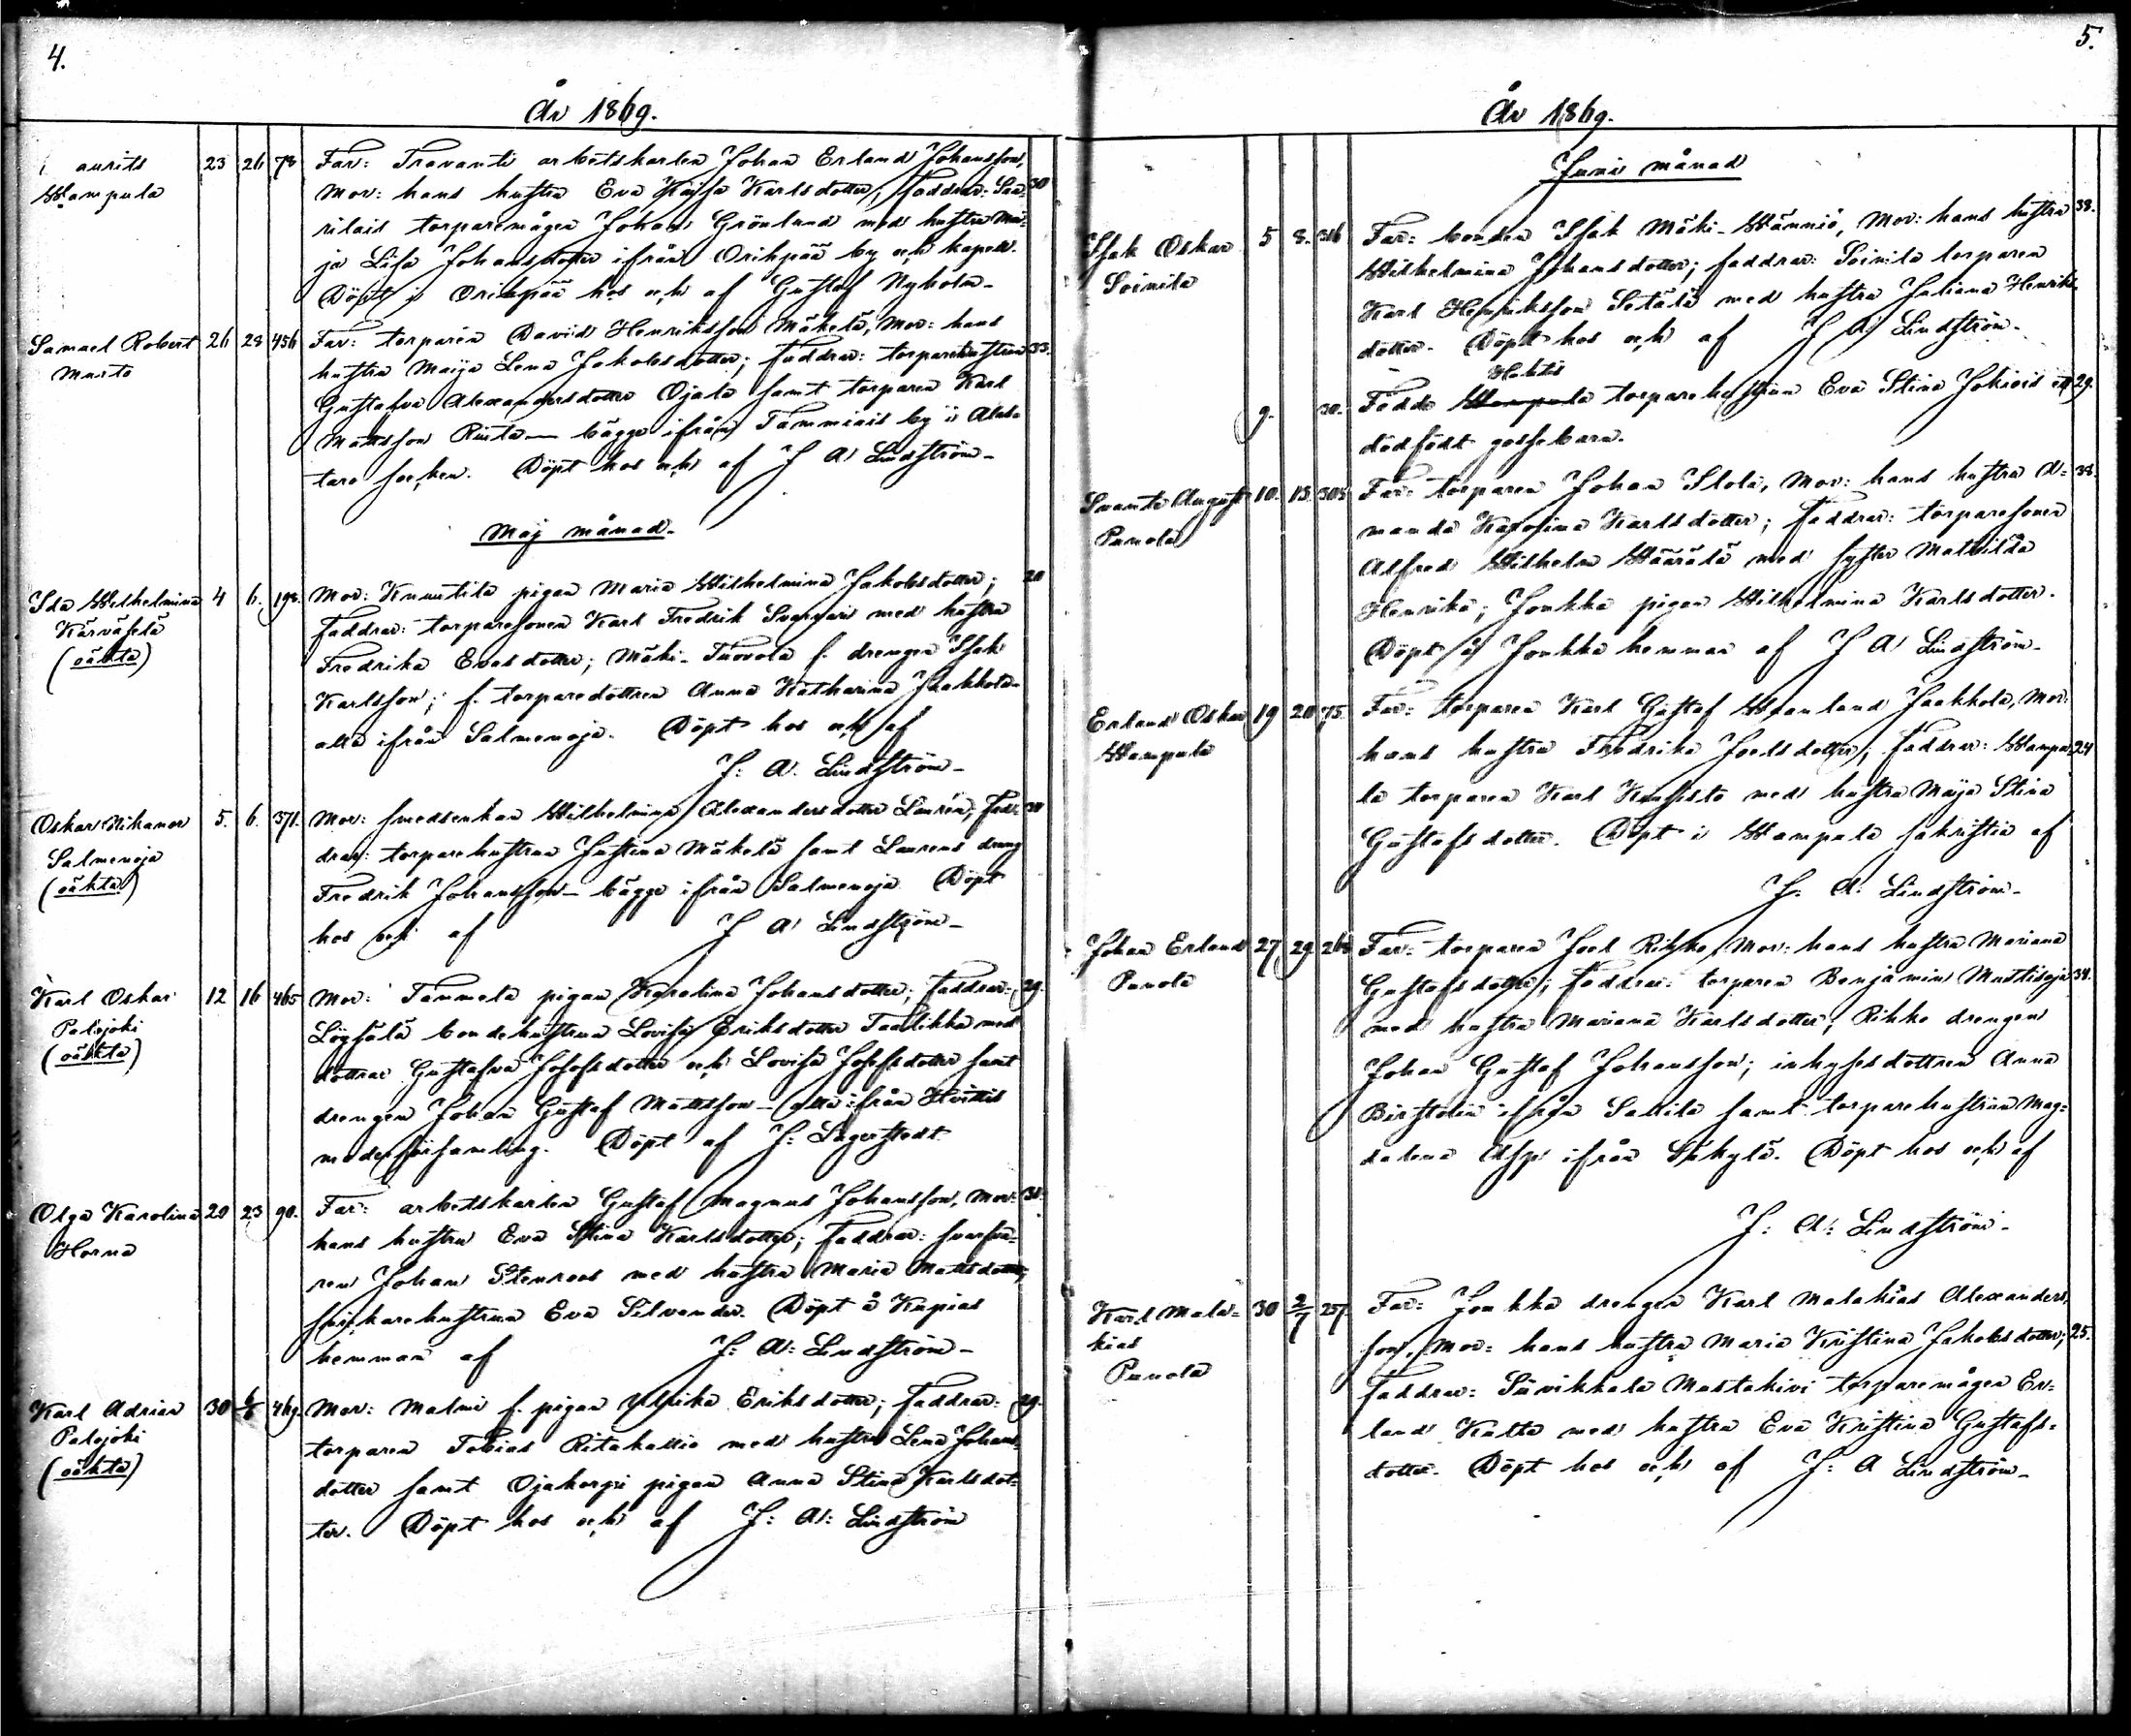 4.
År 1869.
aurits 23 26 78 Far: Travanti arbetskarlen Johan Erland Johansson,
Wampula Mor: hans hustru Eva Kajsa Karlsdotter; faddrar: Saa- 30
rilais torparemågen Johan Grönlund med hustru Ma-
ja Lisa Johansdotter ifrån Orihpää by och kapell.
Döpt i Orihpää hos och af Gustaf Nyholm-
Samuel Robert 26 28 456 Far: torparen David Henriksson Mäkelä, Mor: hans
Murto hustru Maija Lena Jakobsdotter; faddrar: torparehustrun 33.
Gustafva Alexandersdotter Ojala samt torparen Karl
Mattsson Rinta — bägge ifrån Tammiais by i Alas-
taro socken. Döpt hos och af J A Lindström-
Maj månad.
Ida Wilhelmina 4 6. 198. Mor: Knuutila pigan Maria Wilhelmina Jakobsdotter; 20
Kärväselä faddrar: torparesonen Karl Fredrik Svarfvari med hustru
(oäkta) Fredrika Evasdotter; Mäki-Tuovola f. drengen Isak
Karlsson; f. torparedottren Anna Katharina Jaakkola-
alla ifrån Salmenoja. Döpt hos och af
J: A. Lindström-
Oskar Nikanor 5. 6. 371. Mor: smedsenkan Wilhelmina Alexandersdotter Laurén; fad- 30
Salmenoja drar: torparehustrun Justina Mäkelä samt Laurens dreng
(oäkta) Fredrik Johansson — bägge ifrån Salmenoja. Döpt
hos och af J A Lindström-
Karl Oskar 12 16 465 Mor: Tammela pigan Karolina Johansdotter; faddrar: 29.
Palojoki Löysälä bondehustrun Lovisa Eriksdotter Taalikka med
(oäkta) döttrar Gustafva Josefsdotter och Lovisa Josefsdotter samt
drengen Johan Gustaf Mattsson — alla ifrån Hvittis
moderförsamling. Döpt af J: Lagerstedt.
Olga Karolina 20 23 90. Far: arbetskarlen Gustaf Magnus Johansson, Mor: 38.
Horna hans hustru Eva Stina Karlsdotter; faddrar: svarfva-
ren Johan Stenroos med hustru Maria Mattsdotter,
snickarehustrun Eva Silvander. Döpt å Kupias
hemman af J: A: Lindström-
Karl Adrian 30 6/6 469. Mor: Malmi f. pigan Ulrika Eriksdotter; faddrar: 29.
Palojoki torparen Tobias Ritakallio med hustru Lena Johans-
(oäkta) dotter samt Ojakorpi pigan Anna Stina Karlsdot-
ter. Döpt hos och af J: A: Lindström
5.
År 1869.
Juni månad
Isak Oskar 5 8. 316 Far: bonden Isak Mäki-Wänniö, Mor: hans hustru 38.
Soinila Wilhelmina Johansdotter; faddrar: Soinila torparen
Karl Henriksson Setälä med hustru Juliana Henriks-
dotter. Döpt hos och af J A Lindström-
Huhtis
9. 30. Födde Wampula torparehustrun Eva Stina Jokiois ett 29.
dödfödt gossebarn.
Svante August 10. 13. 305 Far: torparen Johan Slola, Mor: hans hustru A- 38.
Punola manda Karolina Karlsdotter; faddrar: torparesonen
Alfred Wilhelm Wäärälä med syster Mathilda
Henrika; Jonkka pigan Wilhelmina Karlsdotter.
Döpt å Jonkka hemman af J A Lindström-
Erland Oskar 19 20 75. Far: torparen Karl Gustaf Wanland Jaakkola, Mor:
Wampula hans hustru Fredrika Joelsdotter; faddrar: Wampu- 24
la torparen Karl Kuusisto med hustru Maja Stina
Gustafsdotter. Döpt i Wampula sakristia af
J. A: Lindström-
Johan Erland 27 29. 268 Far: torparen Joel Rikko, Mor: hans hustru Mariana
Punola Gustafsdotter; faddrar: torparen Benjamin Mustisoja 34.
med hustru Mariana Karlsdotter; Rikko drengen
Johan Gustaf Johansson; inhysesdottren Anna
Birstolin ifrån Sallila samt torparehustrun Mag-
dalena Asp ifrån Säkylä. Döpt hos och af
J: A: Lindström-
Karl Mala- 30 2/7 257. Far: Jonkka drengen Karl Malakias Alexanders-
kias son, Mor: hans hustru Maria Kristina Jakobsdotter; 25.
Punola Faddrar: Sävikkala Mustakivi torparemågen Er-
land Kulta med hustru Eva Kristina Gustafs-
dotter. Döpt hos och af J: A Lindström-